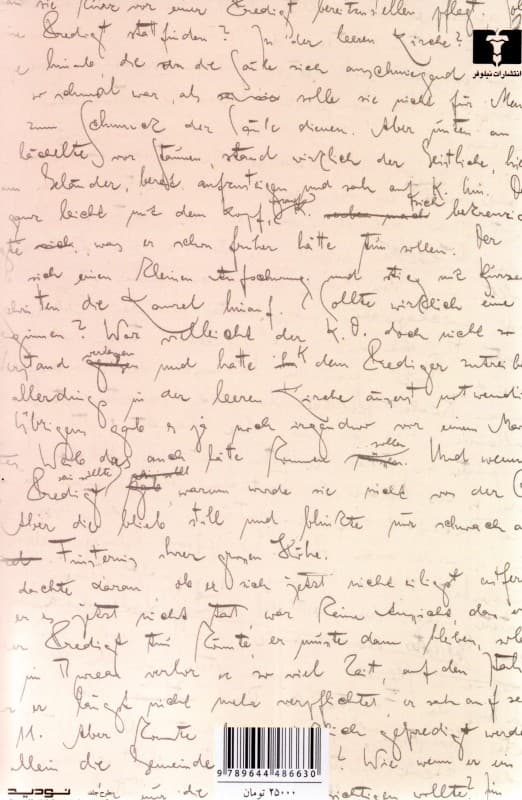 sie kurz vor einer Predigt bereitzustellen pflegt.
انتشارات نیلوفر
Predigt stattfinden? In der leeren Kirche?
hinab, die an die Säule sich anschmiegend
so schmal war, als solle sie nicht für Men
zum Schmuck der Säule dienen. Aber unten an
lächelte vor Staunen, stand wirklich der Geistliche, hie
am Geländer, bereit aufzusteigen und sah auf K. hin. D
ganz leicht mit dem Kopf, K. sich bekreuzi
te was er schon früher hätte tun sollen. Der
sich einen kleinen Aufschwung und stieg mit kurzen
chritten die Kanzel hinauf. Sollte wirklich eine
ginnen? War vielleicht der K.D. doch nicht so
erstand verlassen und hatte K dem Prediger zutreibe
allerdings in der leeren Kirche äusserst notwendi
Übrigens gab es ja noch irgendwo vor einem Mar
tes Weib das auch hätte kommen sollen. Und wenn
Predigt sein sollte, warum wurde sie nicht von der O
Aber die blieb still und blinkte nur schwach a
Finsternis ihrer grossen Höhe.
dachte daran ob er sich jetzt nicht eiligst entfer
er es jetzt nicht tat war keine Aussicht, das er
er Predigt tun könnte, er müsste dann bleiben, sola
im Bureau verlor er so viel Zeit, auf den Itali
r er längst nicht mehr verpflichtet, er sah auf se
11. Aber konnte gepredigt werde
allein die Gemeinde Wie wenn er ein
nur die sichtigen wollte? Im
9789644486630
۲۵۰۰۰ تومان